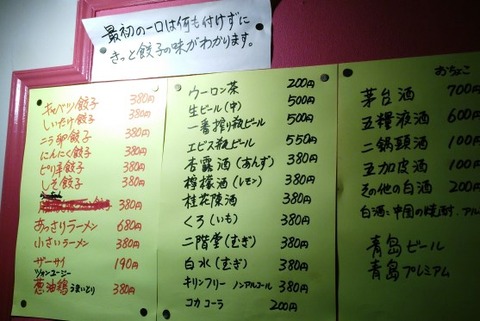 最初の一口は何も付けずに
きっと餃子の味がわかります。
キャベツ餃子 380円
しいたけ餃子 380円
ニラ卵餃子 380円
にんにく餃子 380円
ピリ辛餃子 380円
しそ餃子 380円
380円
あっさりラーメン 680円
小さいラーメン 380円
ザーサイ 190円
ツォンユージー
葱油鶏 うまいとり 380円
ウーロン茶 200円
生ビール(中) 500円
一番搾り瓶ビール 500円
エビス瓶ビール 550円
杏露酒(あんず) 380円
檸檬酒(レモン) 380円
桂花陳酒 380円
くろ(いも) 380円
二階堂(むぎ) 380円
白水(むぎ) 380円
キリンフリー ノンアルコール 380円
コカコーラ 200円
おちょこ
茅台酒 700円
五糧液酒 600円
二鍋頭酒 100円
五加皮酒 100円
その他の白酒 200円
白酒:中国の焼酎.アル
青島ビール
青島プレミアム